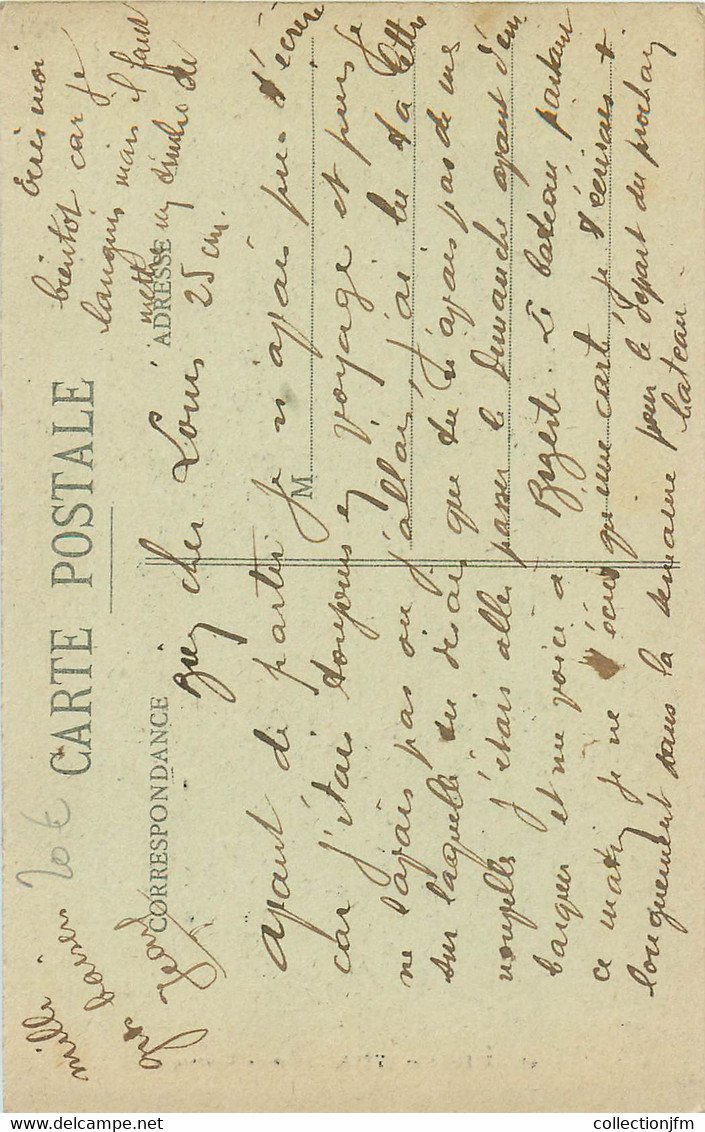 CARTE POSTALE
CORRESPONDANCE
ADRESSE
M
20 €
Bien cher Louis
Avant de partir je n'avais pu t'écrire
car j'étais toujours en voyage et puis je
ne savais pas ou j'allais j'ai lu ta lettre
sur laquelle tu disais que tu n'avais pas de mes
nouvelles j'étais allé passer le Dimanche avant d'em
barquer et me voici a Bizerte. Le bateau partant
ce matin je ne t'écris qu'une carte je t'écrirais +
longuement dans la semaine pour le départ du prochain
bateau
Ecris moi
bientot car je
languis mais il faut
mettre un timbre de
25 cm.
mille
baisers
Jean
delcampe.net
collectionjfm